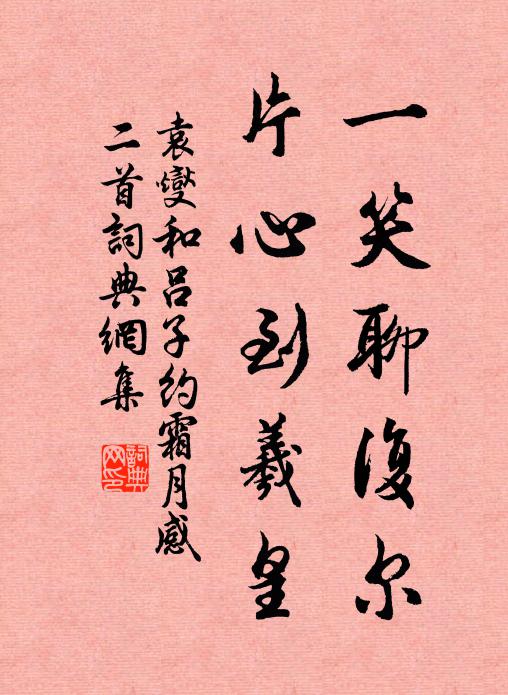 一笑聊復尔
片心到羲皇
袁燮和呂子約霜月感
二首詞典網集
詞典
网印